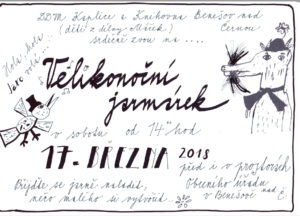 DDM Kaplice a Knihovna Benešov nad
(děti z dílny Oříšek) Černou
srdečně zvou na ....
Hola, hola,
jaro volá ...
Velikonoční
jarmárek
v sobotu od 14°° hod
17. BŘEZNA 2018
před i v prostorách
Obecního úřadu
v Benešově nad Č.
Přijďte se jarně naladit,
něco malého si vytvořit